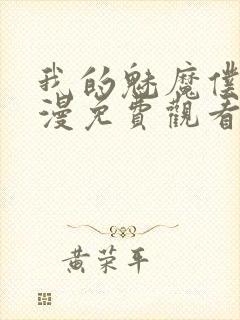 我的魅魔僕
漫免費觀看
黄荣平